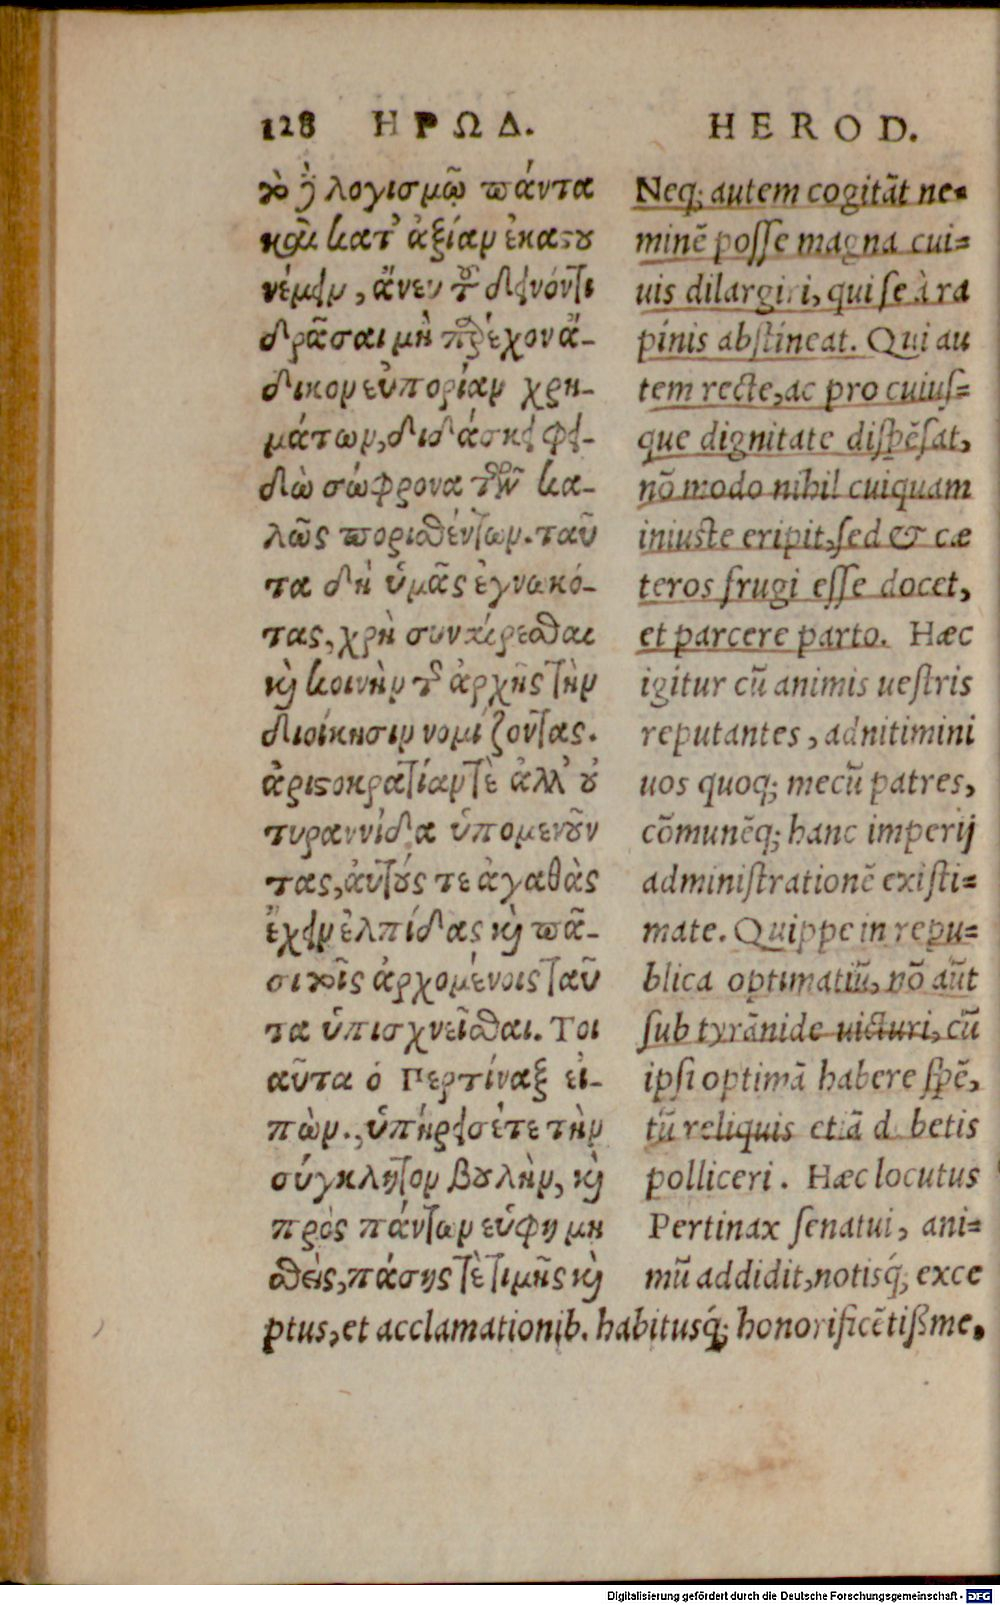 128 ΗΡΩΔ.
τὸ ἢ λογισμῷ πάντα
καὶ κατ' ἀξίαν ἑκάστου
νέμειν, ἄνευ τοῦ δεινόν τι
δρᾶσαι μὴ παρέχον ἄ-
δικον εὐπορίαν χρη-
μάτων, διδάσκει φει-
δὼ σώφρονα τῶν κα-
λῶς πορισθέντων. ταῦ
τα δὴ ὑμᾶς ἐγνωκό-
τας, χρὴ συναίρεσθαι
καὶ κοινὴν τῆς ἀρχῆς τὴν
διοίκησιν νομίζοντας.
ἀριστοκρατίαν τὲ ἀλλ' οὐ
τυραννίδα ὑπομενοῦν
τας, αὐτούς τε ἀγαθὰς
ἔχειν ἐλπίδας καὶ πᾶ-
σι τοῖς ἀρχομένοις ταῦ
τα ὑπισχνεῖσθαι. Τοι
αῦτα ὁ Περτίναξ εἰ-
πὼν., ὑπήρεισέτε τὴν
σύγκλητον βουλὴν, καὶ
πρὸς πάντων εὐφημη
θεὶς, πάσης τὲ τιμῆς καὶ
HEROD.
Neq; autem cogitāt ne=
minē posse magna cui=
uis dilargiri, qui se à ra
pinis abstineat. Qui au
tem recte, ac pro cuius=
que dignitate dispēsat,
nō modo nihil cuiquam
iniuste eripit, sed & cæ
teros frugi esse docet,
et parcere parto. Hæc
igitur cū animis uestris
reputantes, adnitimini
uos quoq; mecū patres,
cōmunēq; hanc imperij
administrationē existi=
mate. Quippe in repu=
blica optimatiū, nō aūt
sub tyrānide uicturi, cū
ipsi optimā habere spē,
tū reliquis etiā d betis
polliceri. Hæc locutus
Pertinax senatui, ani=
mū addidit, notisq́; exce
ptus, et acclamationib. habitusq́; honorificētißme.
Digitalisierung gefördert durch die Deutsche Forschungsgemeinschaft - DFG